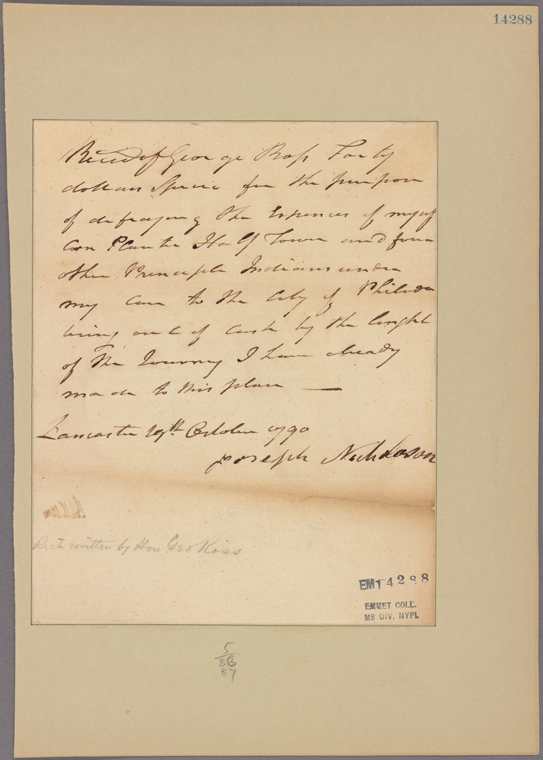 14288
Rec'd of George Ross Forty
dollars Specie for the purpose
of defraying the Expences of myself
Corn Planter Half Town and four
other Principle Indians under
my care to the City of Philada
being out of Cash by the lenght
of the Journey I have already
made to this place —
Lancaster 19th October 1790
Joseph Nicholson
Rec't written by Hon Geo Ross
EMT 4288
EMMET COLL.
MS DIV. NYPL
5